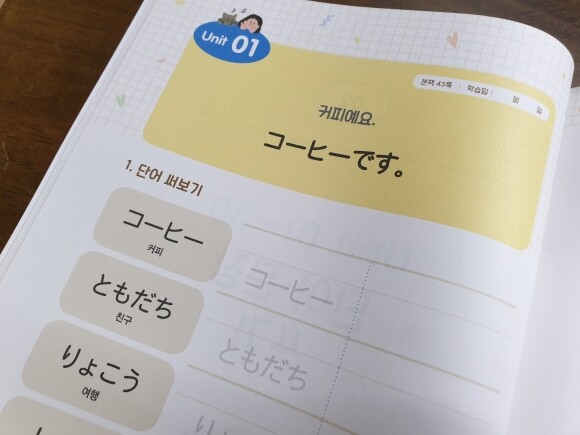 Unit 01
본책 43쪽 : 학습일 : 월 일
커피예요.
コーヒーです。
1. 단어 써보기
コーヒー
커피
コーヒー
ともだち
친구
ともだち
りょこう
여행